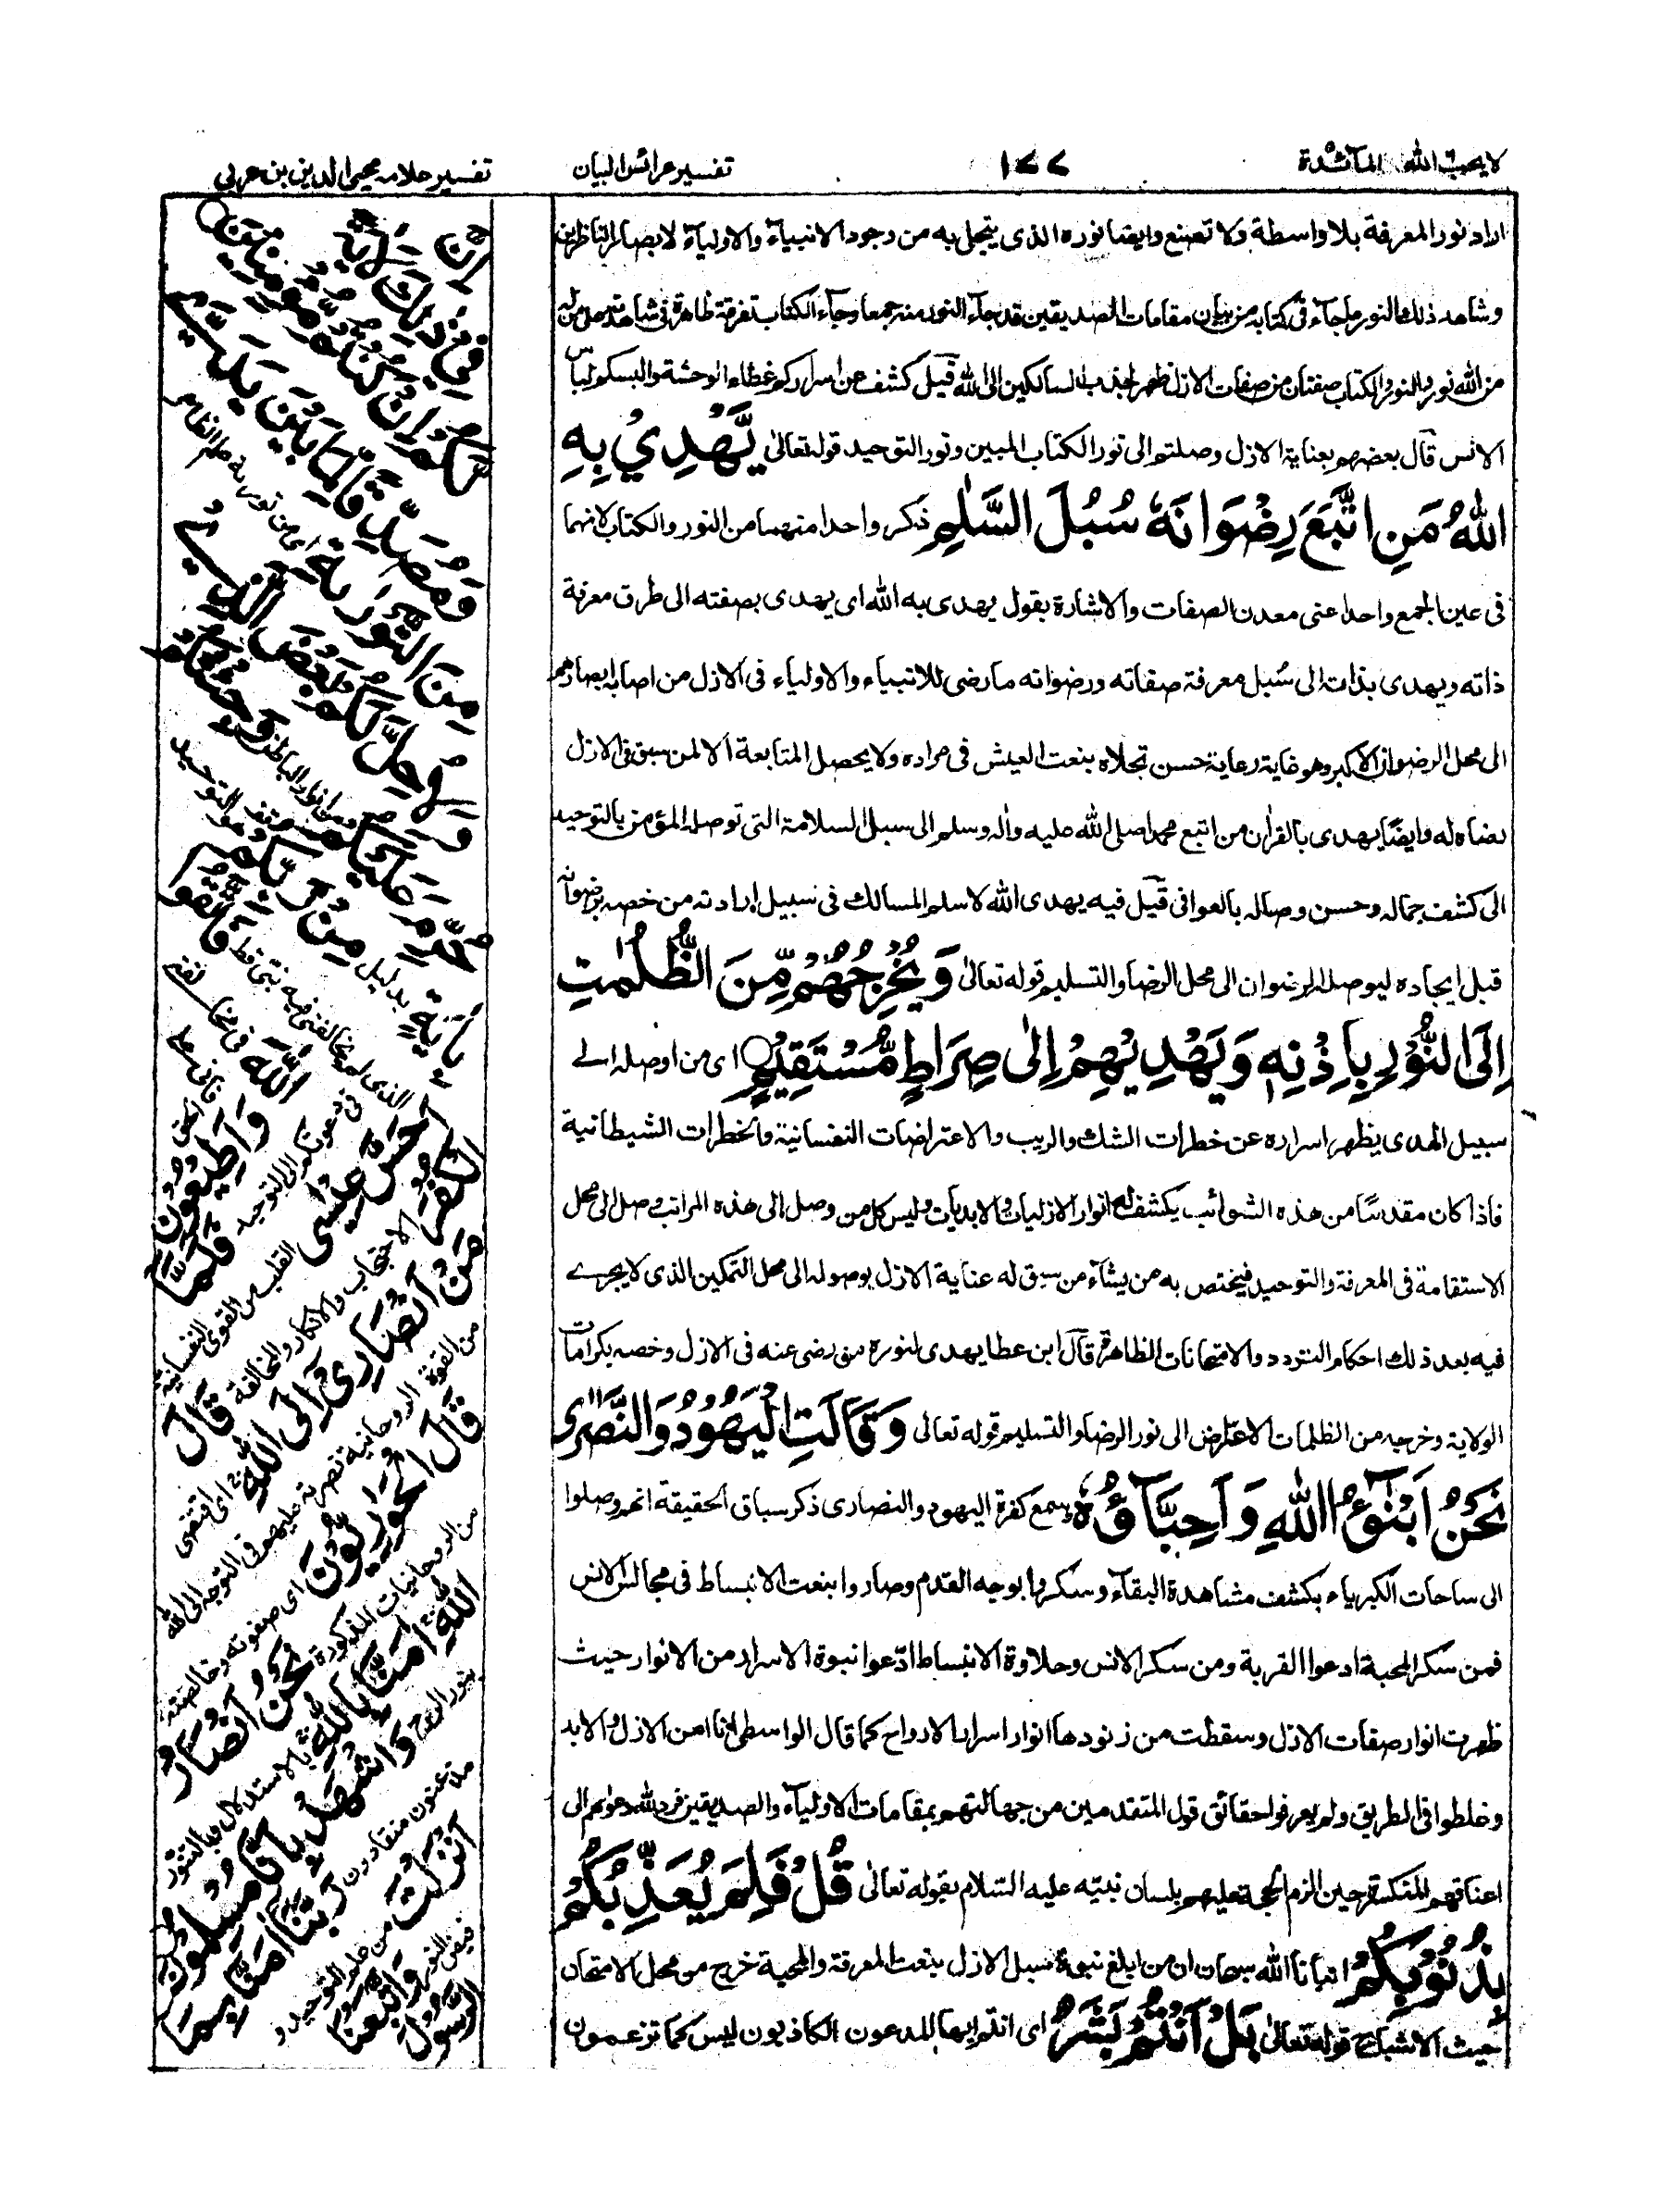 لا يحب الله المآئدة
١٧٧
تفسير عرائس البيان
تفسير علامه محيى الدين بن عربي
اراد نور المعرفة بلا واسطة ولا تصنع وايضا نوره الذى يتجلى به من وجود الانبيآء والاوليآء لابصار الناظرين
وشاهد ذلك النور ما جآء فى كتابه من بيان مقامات الصديقين قد جآء النور منه جمعا وجآء الكتاب تفرقة ظاهرة
من الله نور والنور والكتاب صفتان من صفات الازل ظهر لجذب السالكين الى الله قيل كشف عن اسراركم غطاء الوحشة والبسكم لباس
الانس قال بعضهم بعناية الازل وصلتم الى نور الكتاب المبين ونور التوحيد قوله تعالى يَّهْدِيْ بِهِ
اللهُ مَنِ اتَّبَعَ رِضْوَانَهٗ سُبُلَ السَّلٰمِ ذكر واحدا منهما من النور والكتاب لانهما
فى عين الجمع واحد اعنى معدن الصفات والاشارة بقول يهدى به الله اى يهدى بصفته الى طرق معرفة
ذاته ويهدى بذاته الى سُبل معرفة صفاته ورضوانه ما رضى للانبياء والاولياء فى الازل من اصابة ابصارهم
الى محل الرضوان الاكبر وهو غاية رعاية حسن تجلاه بنعت العيش فى مراده ولا يحصل المتابعة الا لمن سبق فى الازل
رضاه له وايضًا يهدى بالقرآن من اتبع محمدا صلى الله عليه وآله وسلم الى سبل السلامة التى توصله المؤمن بالتوحيد
الى كشف جماله وحسن وصاله بالعوافى قيل فيه يهدى الله لاسلم المسالك فى سبيل ارادته من خصه برضوانه
قبل ايجاده ليوصله الرضوان الى محل الرضا والتسليم قوله تعالى وَيُخْرِجُهُمْ مِّنَ الظُّلُمٰتِ
اِلَى النُّوْرِ بِاِذْنِهٖ وَيَهْدِيْهِمْ اِلٰى صِرَاطٍ مُّسْتَقِيْمٍ اى من اوصله الى
سبيل الهدى يظهر اسراره عن خطرات الشك والريب والاعتراضات النفسانية والخطرات الشيطانية
فاذا كان مقدسًا من هذه الشوائب يكشف له انوار الازليات والابديات وليس كل من وصل الى هذه المراتب وصل الى محل
الاستقامة فى المعرفة والتوحيد فيختص به من يشآء من سبق له عناية الازل بوصوله الى محل التمكين الذى لا يجرى
فيه بعد ذلك احكام التردد والامتحانات الظاهرة قال ابن عطا يهدى لنوره من رضى عنه فى الازل وخصه بكرامات
الولاية وخرجه من الظلمات الاعتراض الى نور الرضا والتسليم قوله تعالى وَقَالَتِ الْيَهُوْدُ وَالنَّصٰرٰى
نَحْنُ اَبْنٰٓؤُا اللهِ وَاَحِبَّآؤُهٗ سمع كفرة اليهود والنصارى ذكر سباق الحقيقة انهم وصلوا
الى ساحات الكبرياء بكشف مشاهدة البقآء وسكروا بوجه القدم وصاروا بنعت الانبساط فى مجالس الانس
فمن سكر المحبة ادعوا القربة ومن سكر الانس وحلاوة الانبساط ادّعوا نبوة الاسرار من الانوار حيث
ظهرت انوار صفات الازل وسقطت من زنودها انوار اسرار الارواح كما قال الواسطى انا ابن الازل والابد
وخلطوا فى الطريق ولم يعرفوا حقائق قول المتقدمين من جهالتهم بمقامات الاوليآء والصديقين فرد الله دعواهم الى
اعناقهم المنكسة حين الزم الحجة عليهم بلسان نبيّه عليه السّلام بقوله تعالى قُلْ فَلِمَ يُعَذِّبُكُمْ
بِذُنُوْبِكُمْ انبأنا الله سبحانه ان من ابلغ نبوة سبل الازل بنعت المعرفة والمحبة خرج من محل الامتحان
حيث الاشباح قوله تعالى بَلْ اَنْتُمْ بَشَرٌ اى انتم ايها المدعون الكاذبون ليس كما تزعمون
اِنَّ فِيْ ذٰلِكَ لَاٰيَةً
لَّكُمْ اِنْ كُنْتُمْ مُّؤْمِنِيْنَ
وَمُصَدِّقًا لِّمَا بَيْنَ يَدَيَّ
مِنَ التَّوْرٰىةِ اى من تورية علم الظاهر
وَلِاُحِلَّ لَكُمْ بَعْضَ الَّذِيْ
حُرِّمَ عَلَيْكُمْ من انوار الباطن وَجِئْتُكُمْ
بِاٰيَةٍ مِّنْ رَّبِّكُمْ هو التوحيد
بدليل الذى لم يخالفنى فيه نبى قط فَاتَّقُوا
اللهَ فى مخالفتى
وَاَطِيْعُوْنِ فى دعوتكم الى التوحيد فَلَمَّآ
اَحَسَّ عِيْسٰى القلب من القوى النفسانية
الْكُفْرَ الاحتجاب والانكار والمخالفة قَالَ
مَنْ اَنْصَارِيْٓ اِلَى اللهِ اى اقتضى
من القوة الروحانية نصرته عليهم فى التوجه الى الله
قَالَ الْحَوَارِيُّوْنَ اى صفوته وخالصته
من الروحانيات المذكورة نَحْنُ اَنْصَارُ
اللهِ اٰمَنَّا بِاللهِ بالاستدلال وبالتنور
بنور الروح وَاشْهَدْ بِاَنَّا مُسْلِمُوْنَ
مذعنون منقادون رَبَّنَآ اٰمَنَّا بِمَآ
اَنْزَلْتَ من علم التوحيد و
فيض النور وَاتَّبَعْنَا الرَّسُوْلَ